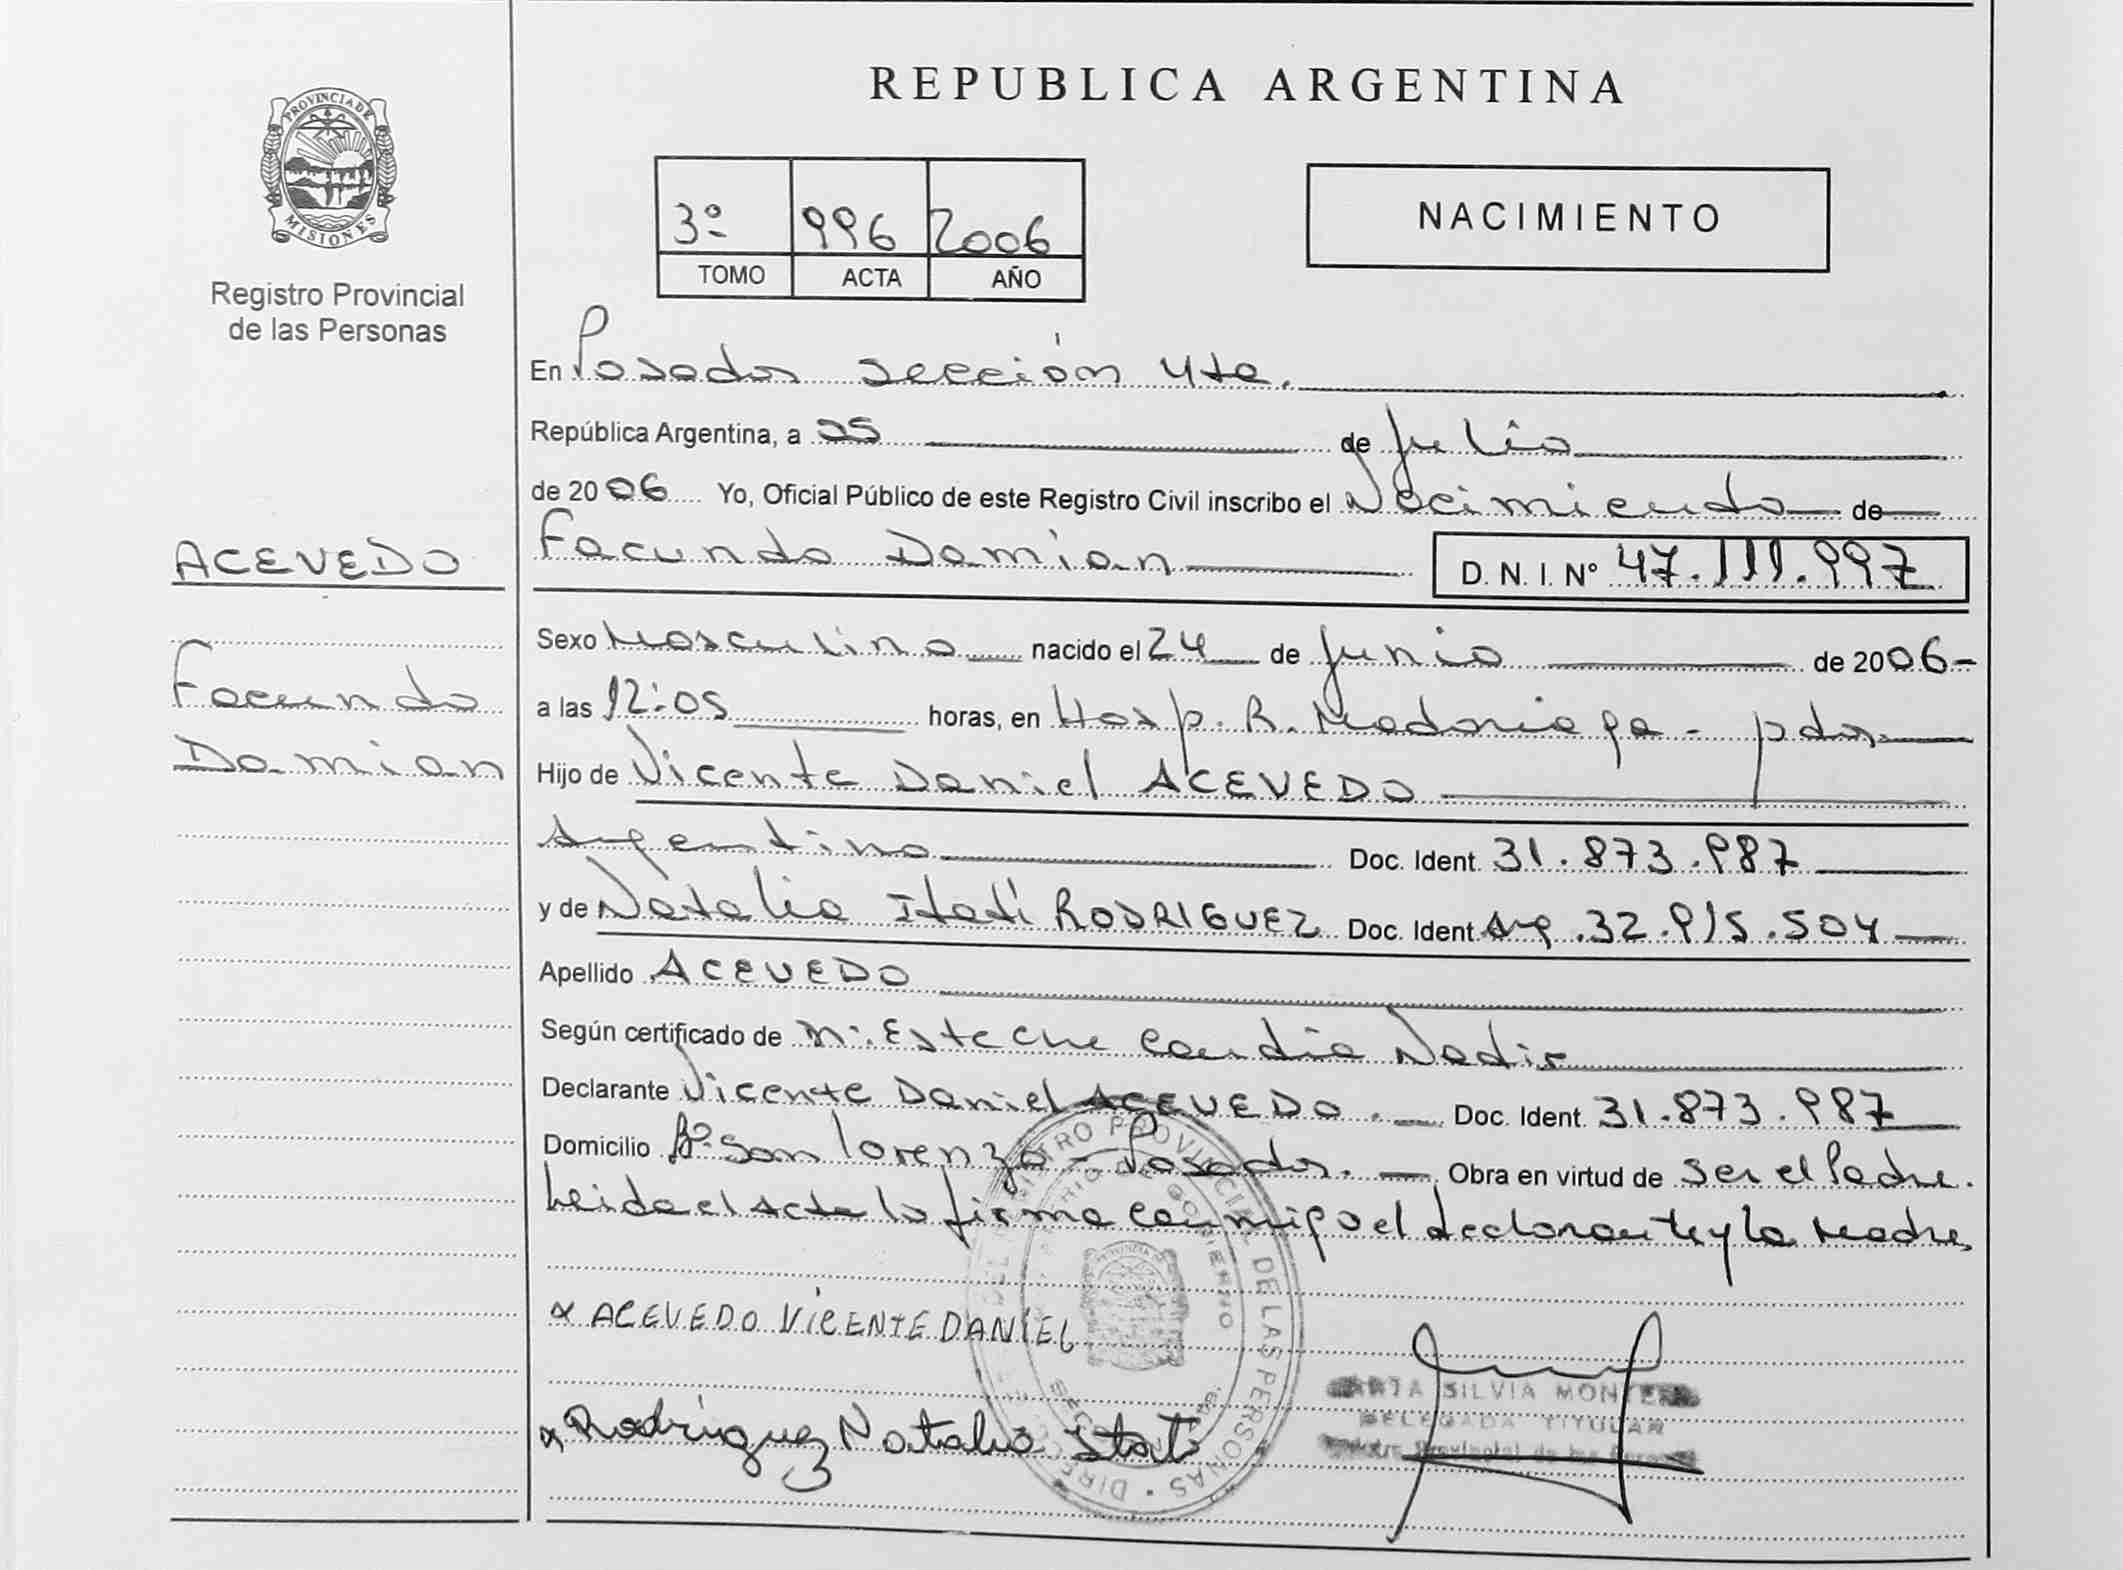 REPUBLICA ARGENTINA
PROVINCIA DE MISIONES
Registro Provincial
de las Personas
3º 996 2006
TOMO ACTA AÑO
NACIMIENTO
En Posadas sección 4ta.
República Argentina, a 05 de julio
de 2006 Yo, Oficial Público de este Registro Civil inscribo el Nacimiento de
ACEVEDO
Facundo Damian D. N. I. Nº 47.111.997
Facundo
Damian
Sexo Masculino nacido el 24 de junio de 2006-
a las 12:05 horas, en Hosp. R. Madariaga - pdas.
Hijo de Vicente Daniel ACEVEDO
Argentino Doc. Ident. 31.873.987
y de Natalia Itatí RODRIGUEZ Doc. Ident. Arg. 32.915.504
Apellido ACEVEDO
Según certificado de Esteche Nadir
Declarante Vicente Daniel ACEVEDO. Doc. Ident. 31.873.987
Domicilio Bº San lorenzo - Posadas. Obra en virtud de ser el Padre.
Leida el acta la firma conmigo el declarante y la Madre
x ACEVEDO VICENTE DANIEL
x Rodríguez Natalia Itati
SILVIA
DELEGADA TITULAR
Provincial de las
PROVINCIAL DE LAS PERSONAS
DE GOBIERNO